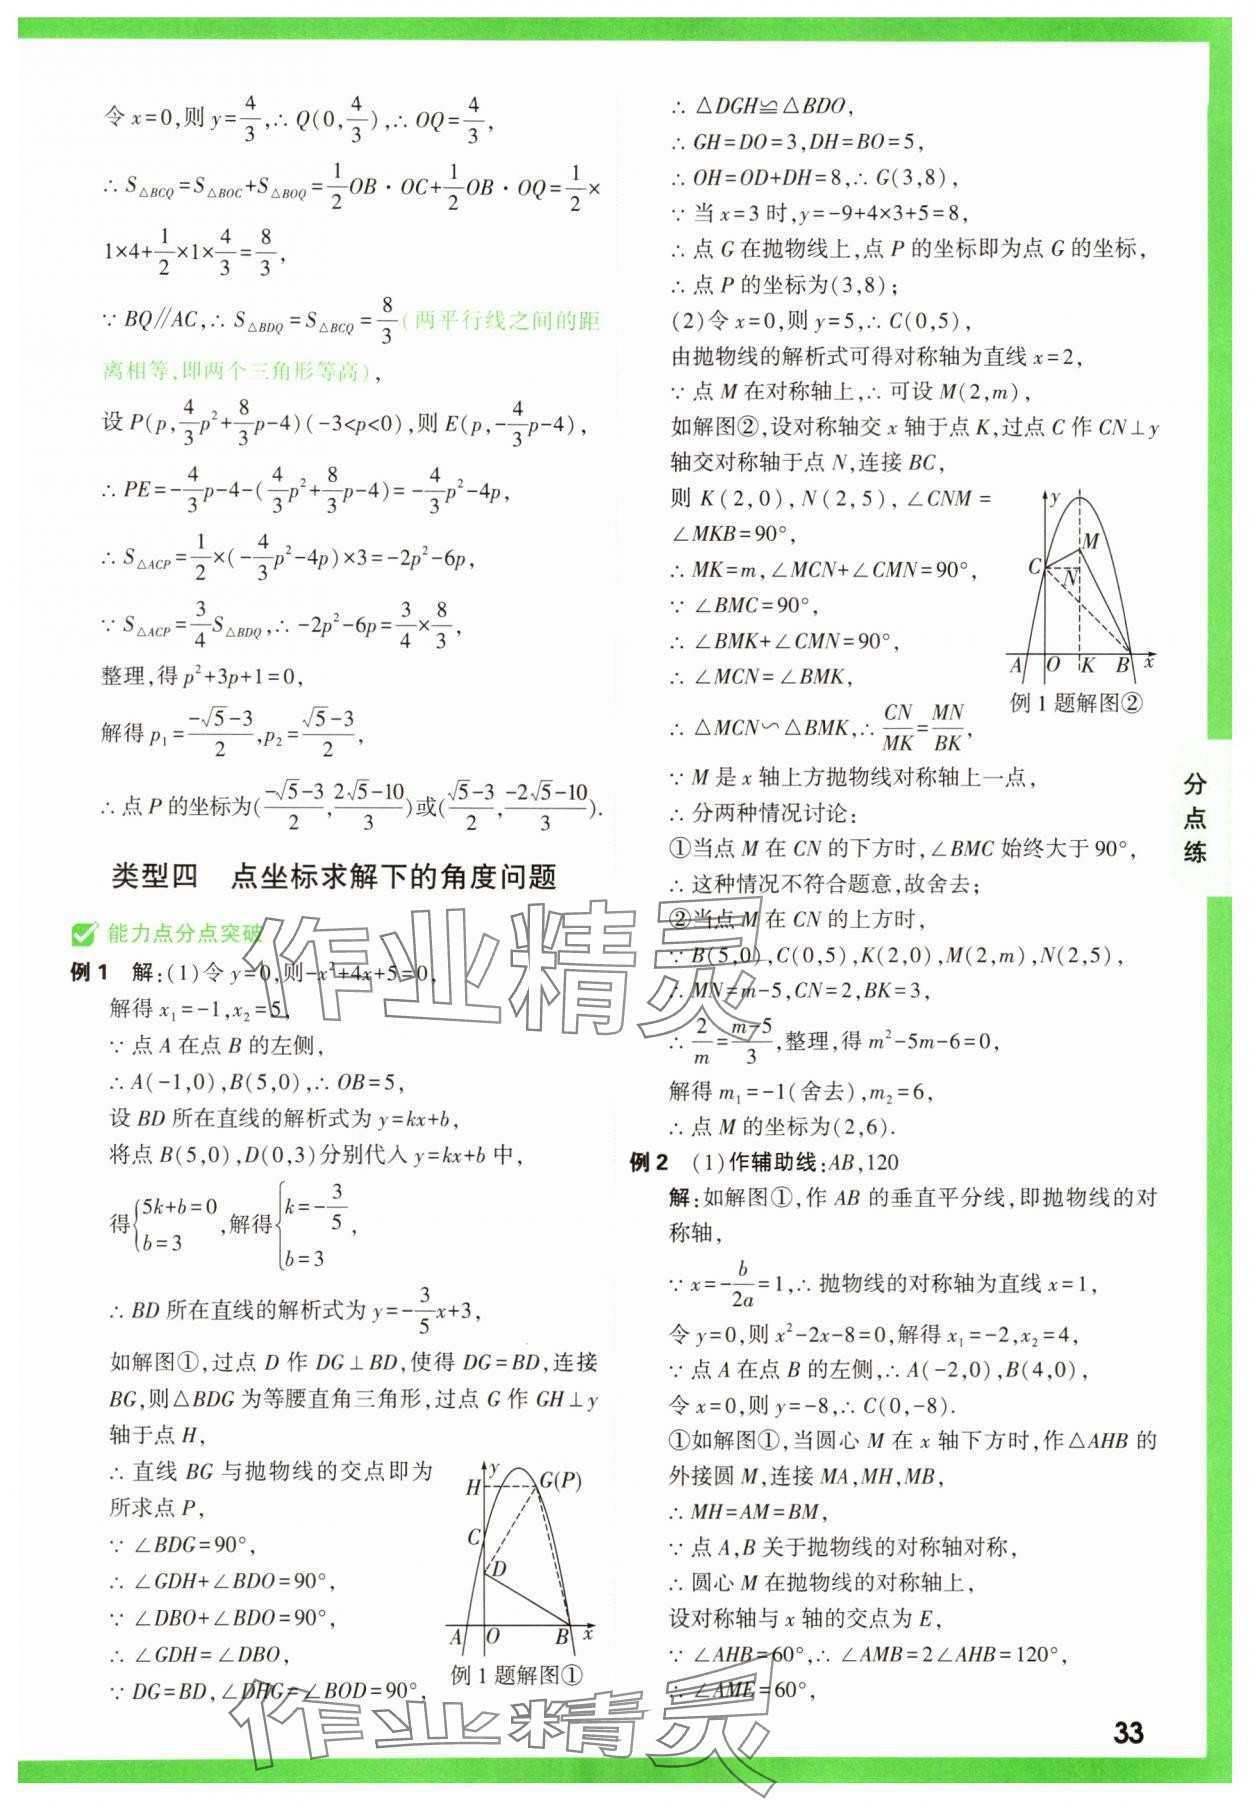 令 x=0,则 y=4/3,∴ Q(0,4/3),∴ OQ=4/3,
∴ S△BCQ=S△BOC+S△BOQ=1/2OB·OC+1/2OB·OQ=1/2×
1×4+1/2×1×4/3=8/3,
∵ BQ∥AC,∴ S△BDQ=S△BCQ=8/3(两平行线之间的距
离相等,即两个三角形等高),
设 P(p,4/3p²+8/3p-4)(-3<p<0),则 E(p,-4/3p-4),
∴ PE=-4/3p-4-(4/3p²+8/3p-4)=-4/3p²-4p,
∴ S△ACP=1/2×(-4/3p²-4p)×3=-2p²-6p,
∵ S△ACP=3/4S△BDQ,∴ -2p²-6p=3/4×8/3,
整理,得 p²+3p+1=0,
解得 p₁=(-√5-3)/2,p₂=(√5-3)/2,
∴ 点 P 的坐标为((-√5-3)/2,(2√5-10)/3)或((√5-3)/2,(-2√5-10)/3).
类型四 点坐标求解下的角度问题
能力点分点突破
例 1 解:(1)令 y=0,则-x²+4x+5=0,
解得 x₁=-1,x₂=5,
∵ 点 A 在点 B 的左侧,
∴ A(-1,0),B(5,0),∴ OB=5,
设 BD 所在直线的解析式为 y=kx+b,
将点 B(5,0),D(0,3)分别代入 y=kx+b 中,
得{5k+b=0 b=3,解得{k=-3/5 b=3,
∴ BD 所在直线的解析式为 y=-3/5x+3,
如解图①,过点 D 作 DG⊥BD,使得 DG=BD,连接
BG,则△BDG 为等腰直角三角形,过点 G 作 GH⊥y
轴于点 H,
∴ 直线 BG 与抛物线的交点即为
所求点 P,
∵ ∠BDG=90°,
∴ ∠GDH+∠BDO=90°,
∵ ∠DBO+∠BDO=90°,
∴ ∠GDH=∠DBO,
∵ DG=BD,∠DHG=∠BOD=90°,
y
H
G(P)
C
D
A
O
B
x
例 1 题解图①
∴ △DGH≌△BDO,
∴ GH=DO=3,DH=BO=5,
∴ OH=OD+DH=8,∴ G(3,8),
∵ 当 x=3 时,y=-9+4×3+5=8,
∴ 点 G 在抛物线上,点 P 的坐标即为点 G 的坐标,
∴ 点 P 的坐标为(3,8);
(2)令 x=0,则 y=5,∴ C(0,5),
由抛物线的解析式可得对称轴为直线 x=2,
∵ 点 M 在对称轴上,∴ 可设 M(2,m),
如解图②,设对称轴交 x 轴于点 K,过点 C 作 CN⊥y
轴交对称轴于点 N,连接 BC,
则 K(2,0),N(2,5),∠CNM=
∠MKB=90°,
∴ MK=m,∠MCN+∠CMN=90°,
∵ ∠BMC=90°,
∴ ∠BMK+∠CMN=90°,
∴ ∠MCN=∠BMK,
∴ △MCN∽△BMK,∴ CN/MK=MN/BK,
y
M
C
N
A
O
K
B
x
例 1 题解图②
∵ M 是 x 轴上方抛物线对称轴上一点,
∴ 分两种情况讨论:
①当点 M 在 CN 的下方时,∠BMC 始终大于 90°,
∴ 这种情况不符合题意,故舍去;
②当点 M 在 CN 的上方时,
∵ B(5,0),C(0,5),K(2,0),M(2,m),N(2,5),
∴ MN=m-5,CN=2,BK=3,
∴ 2/m=(m-5)/3,整理,得 m²-5m-6=0,
解得 m₁=-1(舍去),m₂=6,
∴ 点 M 的坐标为(2,6).
例 2 (1)作辅助线:AB,120
解:如解图①,作 AB 的垂直平分线,即抛物线的对
称轴,
∵ x=-b/2a=1,∴ 抛物线的对称轴为直线 x=1,
令 y=0,则 x²-2x-8=0,解得 x₁=-2,x₂=4,
∵ 点 A 在点 B 的左侧,∴ A(-2,0),B(4,0),
令 x=0,则 y=-8,∴ C(0,-8).
①如解图①,当圆心 M 在 x 轴下方时,作△AHB 的
外接圆 M,连接 MA,MH,MB,
∴ MH=AM=BM,
∵ 点 A,B 关于抛物线的对称轴对称,
∴ 圆心 M 在抛物线的对称轴上,
设对称轴与 x 轴的交点为 E,
∵ ∠AHB=60°,∴ ∠AMB=2∠AHB=120°,
∴ ∠AME=60°,
分点练
33
作业精灵
作业精灵